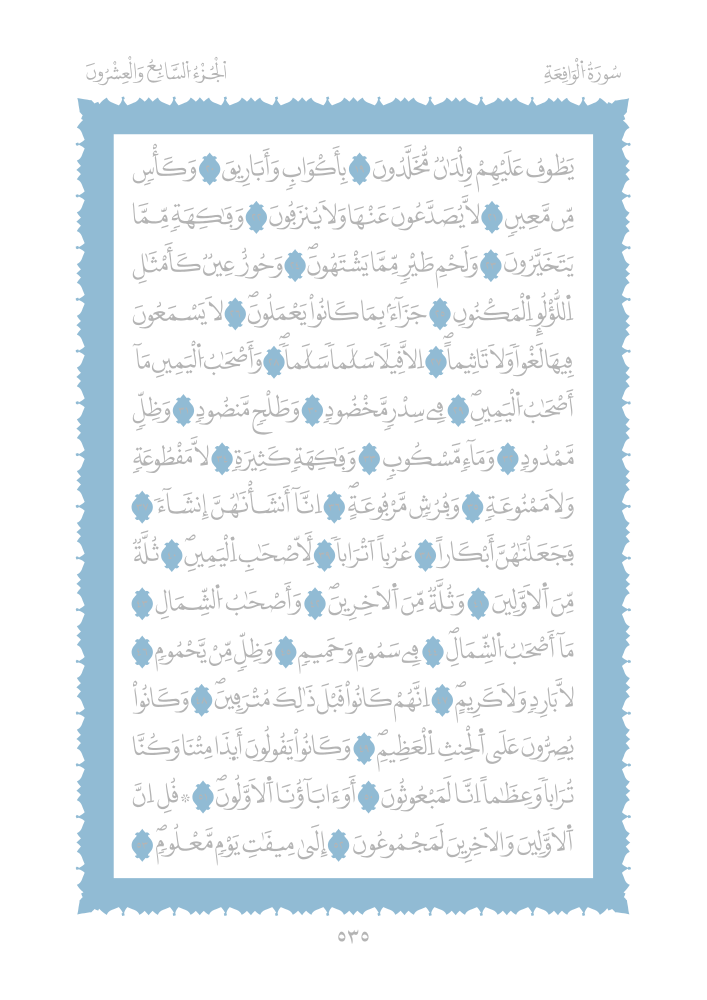 سُورَةُ اُ۬لْوَاقِعَةِ
اَ۬لْجُزْءُ اُ۬لسَّابِعُ وَالْعِشْرُونَ
يَطُوفُ عَلَيْهِمْ وِلْدَٰنٞ مُّخَلَّدُونَ بِأَكْوَابٖ وَأَبَارِيقَ وَكَأْسٖ
مِّن مَّعِينٖ لاَّ يُصَدَّعُونَ عَنْهَا وَلاَ يُنزَفُونَ وَفَٰكِهَةٖ مِّمَّا
يَتَخَيَّرُونَ وَلَحْمِ طَيْرٖ مِّمَّا يَشْتَهُونَۖ وَحُورٌ عِينٞ كَأَمْثَٰلِ
اِ۬للُّؤْلُوِٕ اِ۬لْمَكْنُونِ جَزَآءَۢ بِمَا كَانُواْ يَعْمَلُونَۖ لاَ يَسْمَعُونَ
فِيهَا لَغْواٗ وَلاَ تَاثِيماًۖ اِلاَّ قِيلاٗ سَلَٰماٗ سَلَٰماٗۖ وَأَصْحَٰبُ اُ۬لْيَمِينِ مَآ
أَصْحَٰبُ اُ۬لْيَمِينِۖ فِے سِدْرٖ مَّخْضُودٖ وَطَلْحٖ مَّنضُودٖ وَظِلّٖ
مَّمْدُودٖ وَمَآءٖ مَّسْكُوبٖ وَفَٰكِهَةٖ كَثِيرَةٖ لاَّ مَقْطُوعَةٖ
وَلاَ مَمْنُوعَةٖ وَفُرُشٖ مَّرْفُوعَةٍۖ اِنَّآ أَنشَأْنَٰهُنَّ إِنشَآءٗ
فَجَعَلْنَٰهُنَّ أَبْكَاراً عُرُباً اَتْرَاباٗ لِّأَصْحَٰبِ اِ۬لْيَمِينِۖ ثُلَّةٞ
مِّنَ اَ۬لاَوَّلِينَ وَثُلَّةٞ مِّنَ اَ۬لاَخِرِينَۖ وَأَصْحَٰبُ اُ۬لشِّمَالِ
مَآ أَصْحَٰبُ اُ۬لشِّمَالِۖ فِے سَمُومٖ وَحَمِيمٖ وَظِلّٖ مِّنْ يَّحْمُومٖ
لاَّ بَارِدٖ وَلاَ كَرِيمٍۖ اِنَّهُمْ كَانُواْ قَبْلَ ذَٰلِكَ مُتْرَفِينَۖ وَكَانُواْ
يُصِرُّونَ عَلَى اَ۬لْحِنثِ اِ۬لْعَظِيمِۖ وَكَانُواْ يَقُولُونَ أَئِذَا مِتْنَا وَكُنَّا
تُرَاباٗ وَعِظَٰماً اِنَّا لَمَبْعُوثُونَ أَوَءَابَآؤُنَا اَ۬لاَوَّلُونَۖ ۞ قُلِ اِنَّ
اَ۬لاَوَّلِينَ وَالاَخِرِينَ لَمَجْمُوعُونَ إِلَىٰ مِيقَٰتِ يَوْمٖ مَّعْلُومٖۖ
٥٣٥